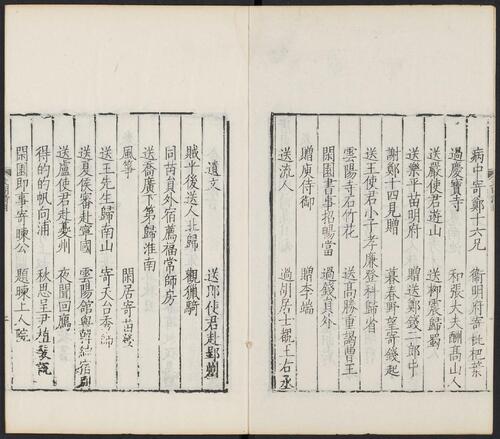 病中寄鄭十六兄　衞明府寄枇杷葉
過慶寶寺　和張大夫酬高山人
送嚴使君遊山　送柳震歸蜀
送樂平苗明府　贈送鄭錢二郎中
謝鄭十四見贈　暮春野望寄錢起
送王使君小子孝廉登科歸省
雲陽寺石竹花　送高勝重謁曹王
閑園書事招暢當　過錢員外
贈庾侍御　贈李端
送流人　過胡居士覩王右丞
遺文　送郎使君赴郢州
賊平後送人北歸　觀獵騎
同苗員外宿薦福常師房
送喬廣下第歸淮南
風箏　閑居寄苗發
送王先生歸南山　寄天台秀師
送夏侯審赴寧國　雲陽館與韓紳宿別
送盧使君赴夔州　夜聞回鴈
得的的帆向浦　秋思呈尹植裴說
閑園即事寄暕公　題暕上人院